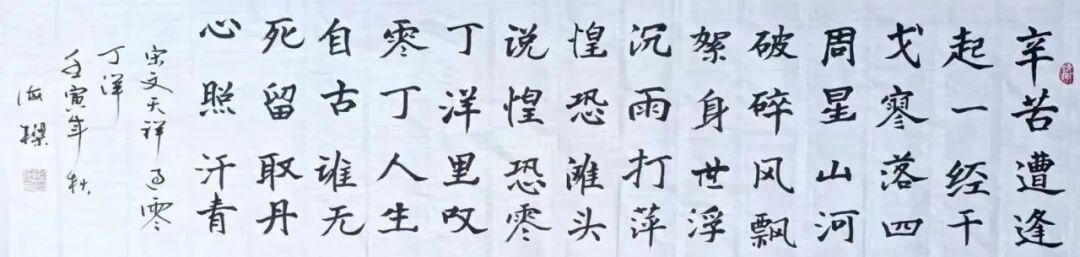 辛苦遭逢
起一经干
戈寥落四
周星山河
破碎风飘
絮身世浮
沉雨打萍
惶恐滩头
说惶恐零
丁洋里叹
零丁人生
自古谁无
死留取丹
心照汗青
宋文天祥过零
丁洋
壬寅年秋